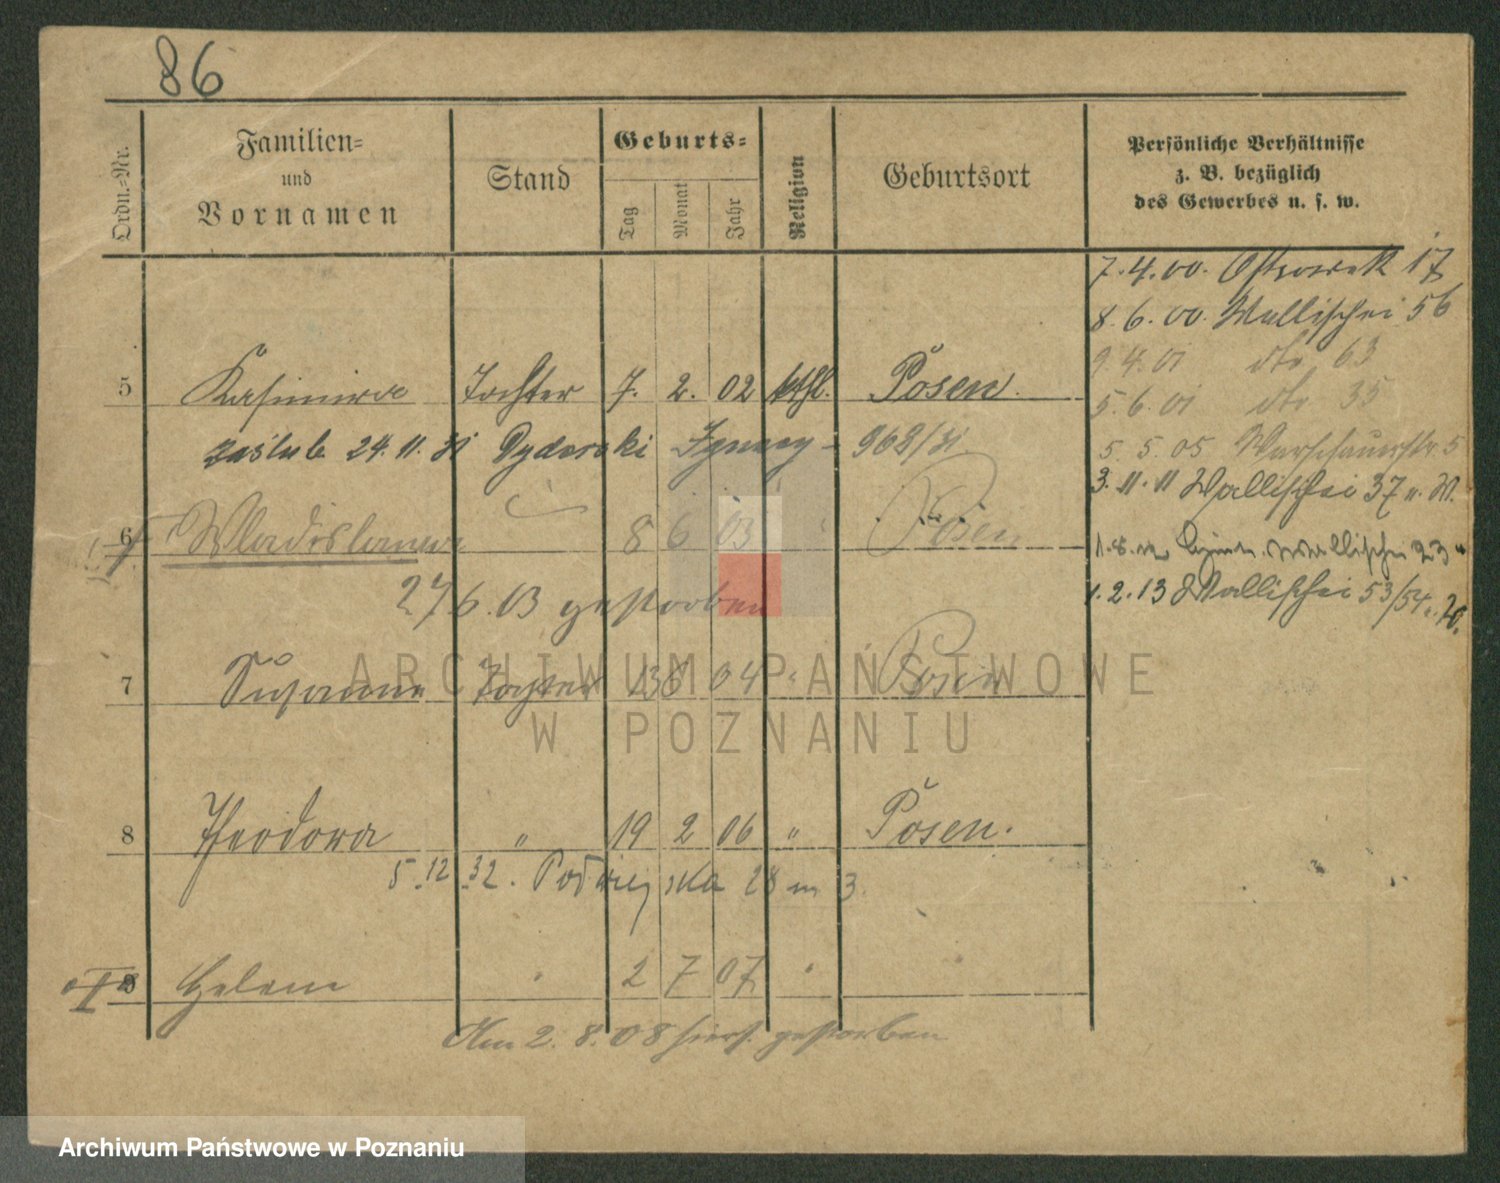 86
Ordn.-Nr.
Familien- und Vornamen
Stand
Geburts-
Tag Monat Jahr
Religion
Geburtsort
Persönliche Verhältnisse
z. B. bezüglich
des Gewerbes u. s. w.
7.4.00. Ostrowek 17
8.6.00. Wallischei 56
9.4.01 dto 63
5.6.01 dto 35
5 Kasimira Tochter 7. 2. 02 kthl. Posen.
zaślub. 24.11.31 Ignacy - 968/31
5.5.05 Warschauerstr. 5
3.11.11 Wallischei 37 u. W.
6 Wladislawa 8 6 03 Posen
Wallischei 23
27 6.03 gestorben
1.2.13 Wallischei 53/54
7 Susanna Tochter 13 8 04 " Posen
8 Theodora " 19 2 06 " Posen.
5.12.32. 28 m 3.
9 Helene " 2 7 07 "
Am 2.8.08 hier gestorben
ARCHIWUM PAŃSTWOWE
W POZNANIU
Archiwum Państwowe w Poznaniu